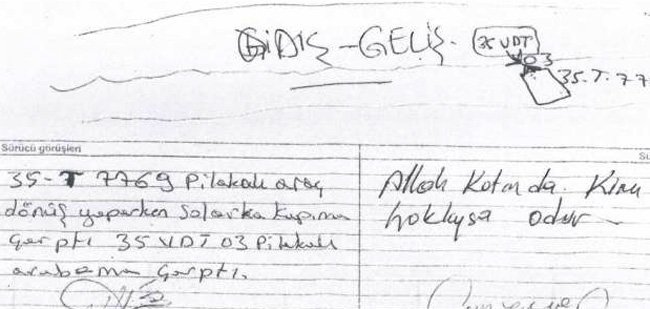 GİDİŞ - GELİŞ.
35 VDT
03
35.T.77
Sürücü görüşleri
Sü
35-T 7769 Pilakalı araç
dönüş yaparken Sol arka kapıma
çarptı 35 VDT 03 Pilakalı
arabama çarptı.
Allah Katında. Kim
haklıysa odur